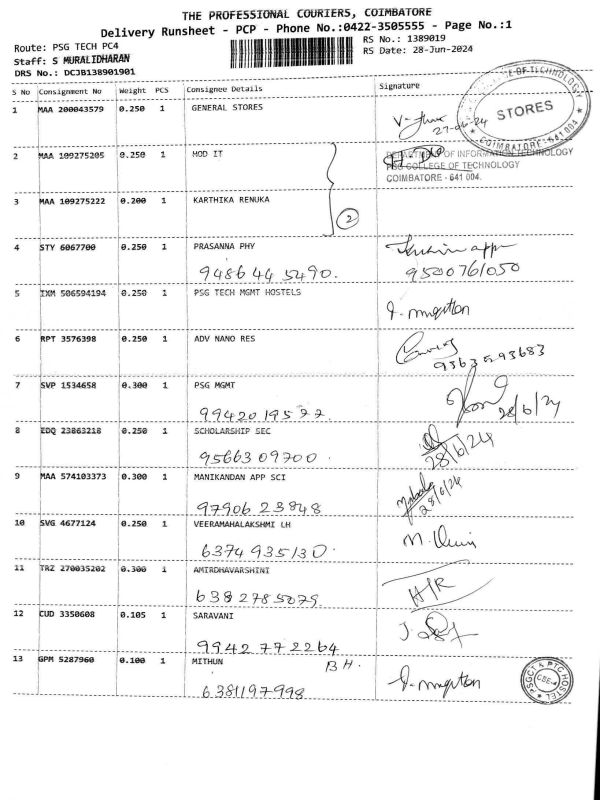 THE PROFESSIONAL COURIERS, COIMBATORE
Delivery Runsheet - PCP - Phone No.:0422-3505555 - Page No.:1
Route: PSG TECH PC4
RS No.: 1389019
Staff: S MURALIDHARAN
RS Date: 28-Jun-2024
DRS No.: DCJB138901901
S No Consignment No Weight PCS Consignee Details Signature
1 MAA 200043579 0.250 1 GENERAL STORES
27-06-24
OF TECHNOLOGY
STORES
COIMBATORE-641 004
2 MAA 109275205 0.250 1 HOD IT
DEPARTMENT OF INFORMATION TECHNOLOGY
PSG COLLEGE OF TECHNOLOGY
COIMBATORE - 641 004.
3 MAA 109275222 0.200 1 KARTHIKA RENUKA
2
4 STY 6067700 0.250 1 PRASANNA PHY
9486445490.
9500761050
5 IXM 506594194 0.250 1 PSG TECH MGMT HOSTELS
6 RPT 3576398 0.250 1 ADV NANO RES
7 SVP 1534658 0.300 1 PSG MGMT
28/6/24
8 EDQ 23863218 0.250 1 SCHOLARSHIP SEC
9566309700.
28/6/24
9 MAA 574103373 0.300 1 MANIKANDAN APP SCI
9790623848
28/6/24
10 SVG 4677124 0.250 1 VEERAMAHALAKSHMI LH
6374935130.
11 TRZ 270035202 0.300 1 AMIRDHAVARSHINI
6382785079
H/R
12 CUD 3350608 0.105 1 SARAVANI
9942772264
13 GPM 5287960 0.100 1 MITHUN
BH.
6381197998
PSGCT & PTC HOSTEL